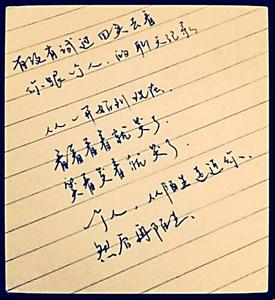 有没有试过回头去看
你跟一个人的聊天记录
从一开始到现在.
看着看着就笑了.
笑着笑着就哭了.
一个人,从陌生
然后再陌生.